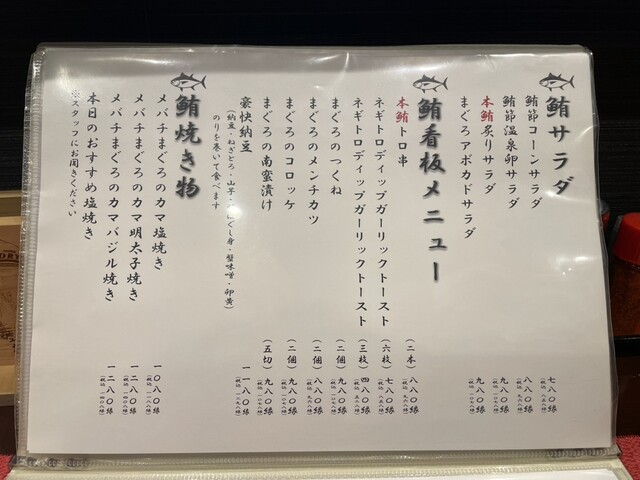 鮪サラダ
鮪節コーンサラダ 七八〇縁
鮪節温泉卵サラダ 八八〇縁
本鮪炙りサラダ 九八〇縁
まぐろアボカドサラダ 九八〇縁
鮪看板メニュー
本鮪トロ串 (二本) 八八〇縁
ネギトロディップガーリックトースト (六枚) 七八〇縁
ネギトロディップガーリックトースト (三枚) 四八〇縁
まぐろのつくね (二個) 九八〇縁
まぐろのメンチカツ (二個) 八八〇縁
まぐろのコロッケ (二個) 九八〇縁
まぐろの南蛮漬け (五切) 九八〇縁
豪快納豆 一一八〇縁
(納豆・ねぎとろ・山芋・ほぐし身・蟹味噌・卵黄)
のりを巻いて食べます
鮪焼き物
メバチまぐろのカマ塩焼き 一〇八〇縁
メバチまぐろのカマ明太子焼き 一二八〇縁
メバチまぐろのカマバジル焼き 一二八〇縁
本日のおすすめ塩焼き
※スタッフにお聞きください